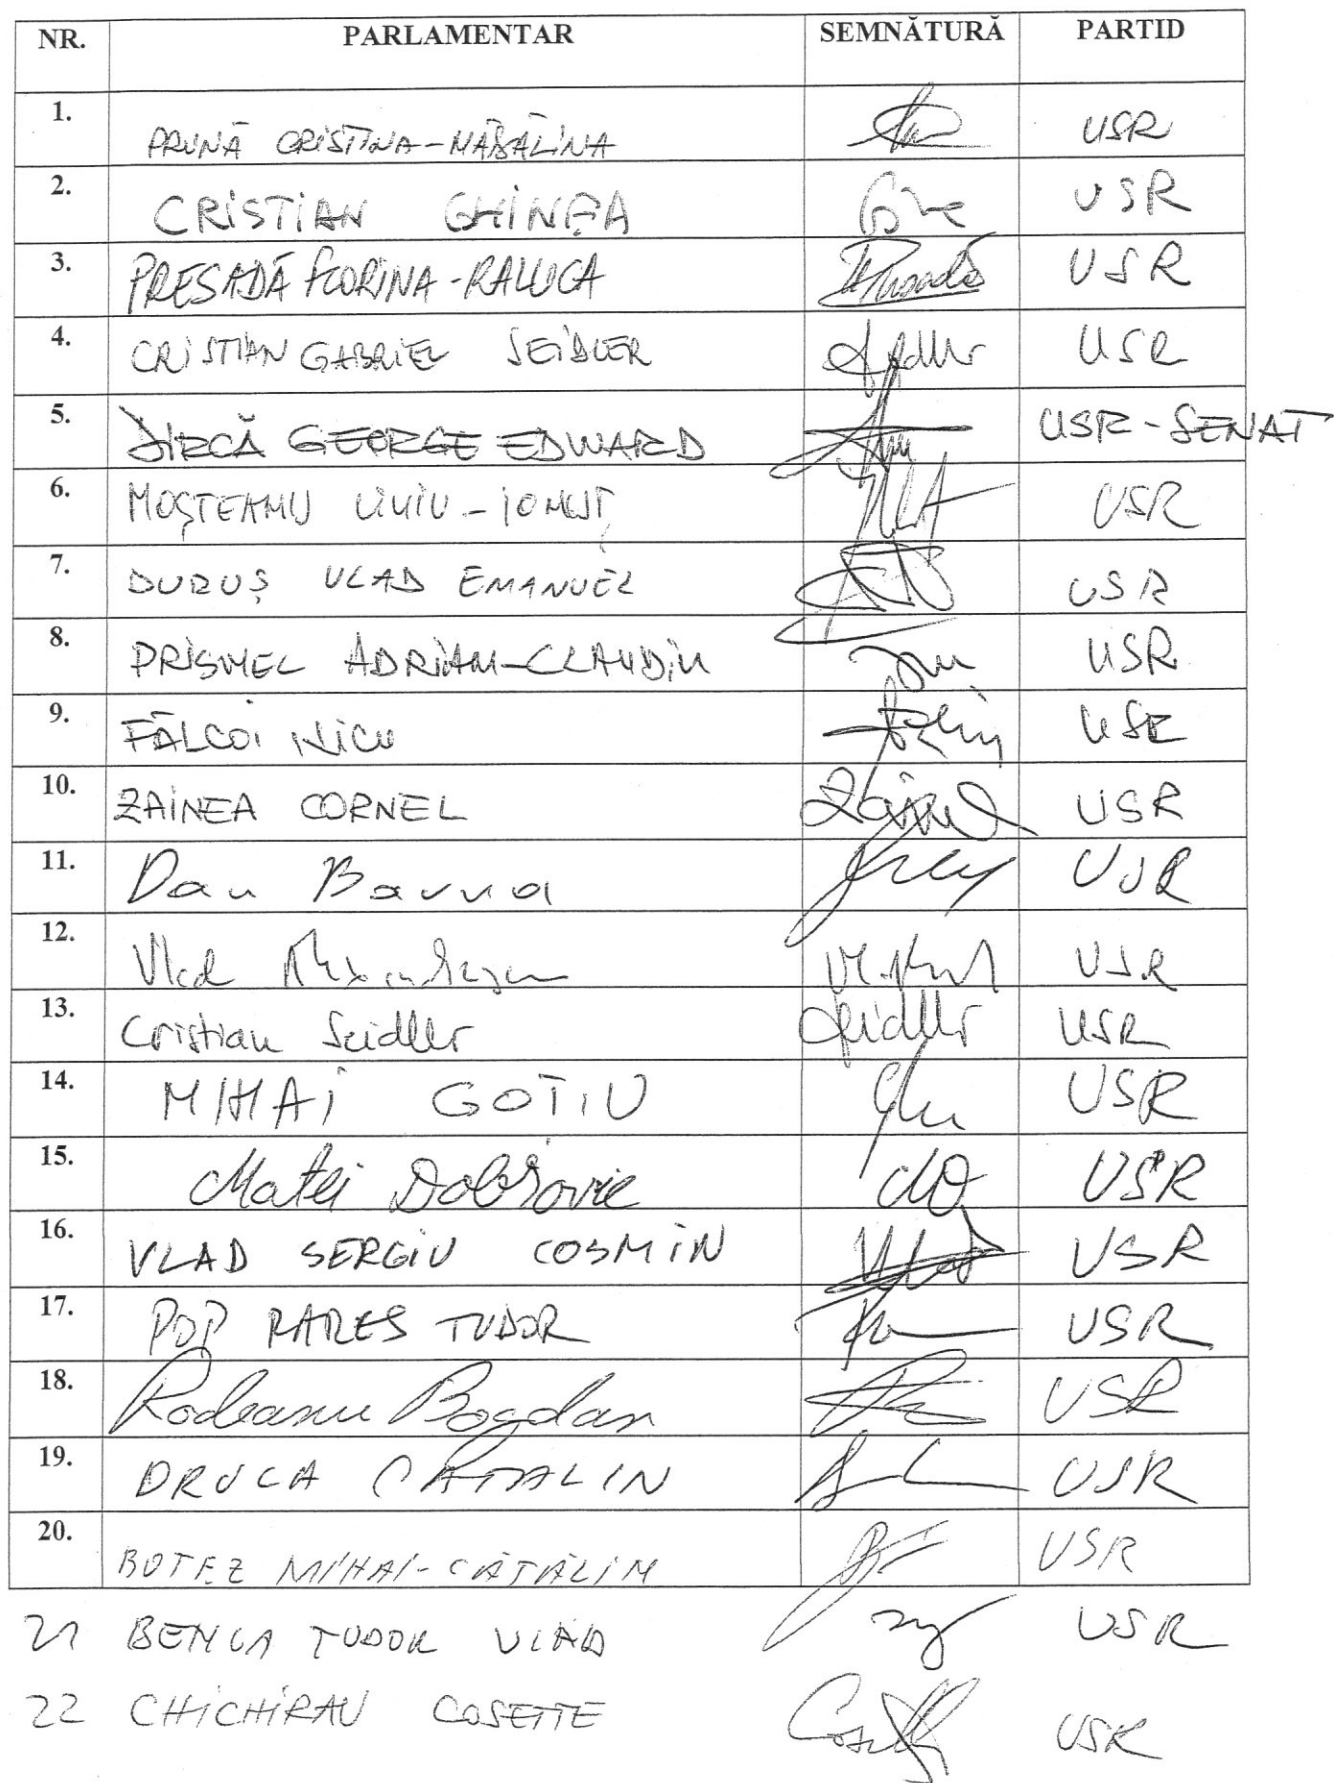 NR. PARLAMENTAR SEMNĂTURĂ PARTID
1. PRUNĂ CRISTINA-MĂDĂLINA USR
2. CRISTIAN GHINEA USR
3. PRESADĂ FLORINA-RALUCA Presadă USR
4. CRISTIAN GABRIEL SEIDLER Seidler USR
5. DIRCĂ GEORGE EDWARD USR-SENAT
6. MOȘTEANU LIVIU-IONUȚ USR
7. DURUȘ VLAD EMANUEL USR
8. PRISNEL ADRIAN-CLAUDIU USR
9. FĂLCOI NICU USR
10. ZAINEA CORNEL Zainea USR
11. Dan Barna USR
12. Vlad Alexandrescu USR
13. Cristian Seidler Seidler USR
14. MIHAI GOȚIU USR
15. Matei Dobrovie MD USR
16. VLAD SERGIU COSMIN Vlad USR
17. POP RAREȘ TUDOR USR
18. Rodeanu Bogdan USR
19. DRULA CĂTĂLIN USR
20. BOTEZ MIHAI-CĂTĂLIN USR
21 BENGA TUDOR VLAD USR
22 CHICHIRĂU COSETTE USR